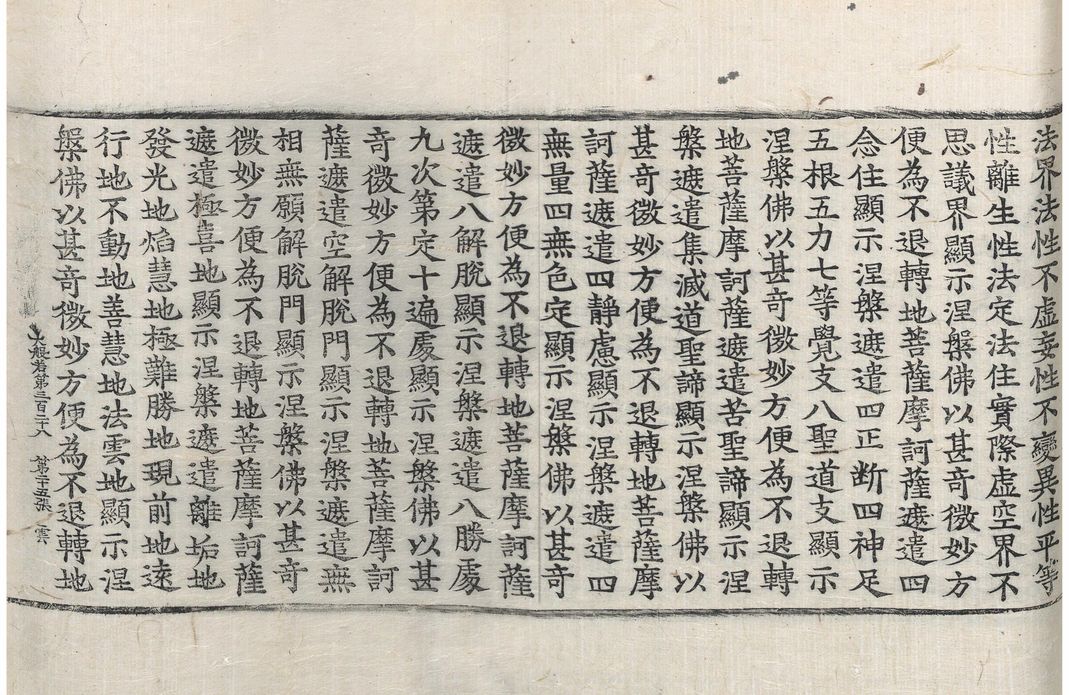 法界法性不虛妄性不變異性平等
性離生性法定法住實際虛空界不
思議界顯示涅槃佛以甚奇微妙方
便為不退轉地菩薩摩訶薩遮遣四
念住顯示涅槃遮遣四正断四神足
五根五力七等覺支八聖道支顯示
涅槃佛以甚奇微妙方便為不退轉
地菩薩摩訶薩遮遣苦聖諦顯示涅
槃遮遣集滅道聖諦顯示涅槃佛以
甚奇微妙方便為不退轉地菩薩摩
訶薩遮遣四靜慮顯示涅槃遮遣四
無量四無色定顯示涅槃佛以甚奇
微妙方便為不退轉地菩薩摩訶薩
遮遣八解脫顯示涅槃遮遣八勝處
九次第定十遍處顯示涅槃佛以甚
奇微妙方便為不退轉地菩薩摩訶
薩遮遣空解脫門顯示涅槃遮遣無
相無願解脫門顯示涅槃佛以甚奇
微妙方便為不退轉地菩薩摩訶薩
遮遣極喜地顯示涅槃遮遣離垢地
發光地焰慧地極難勝地現前地遠
行地不動地善慧地法雲地顯示涅
槃佛以甚奇微妙方便為不退轉地
大般若第三百二十八 第二十五張 雲